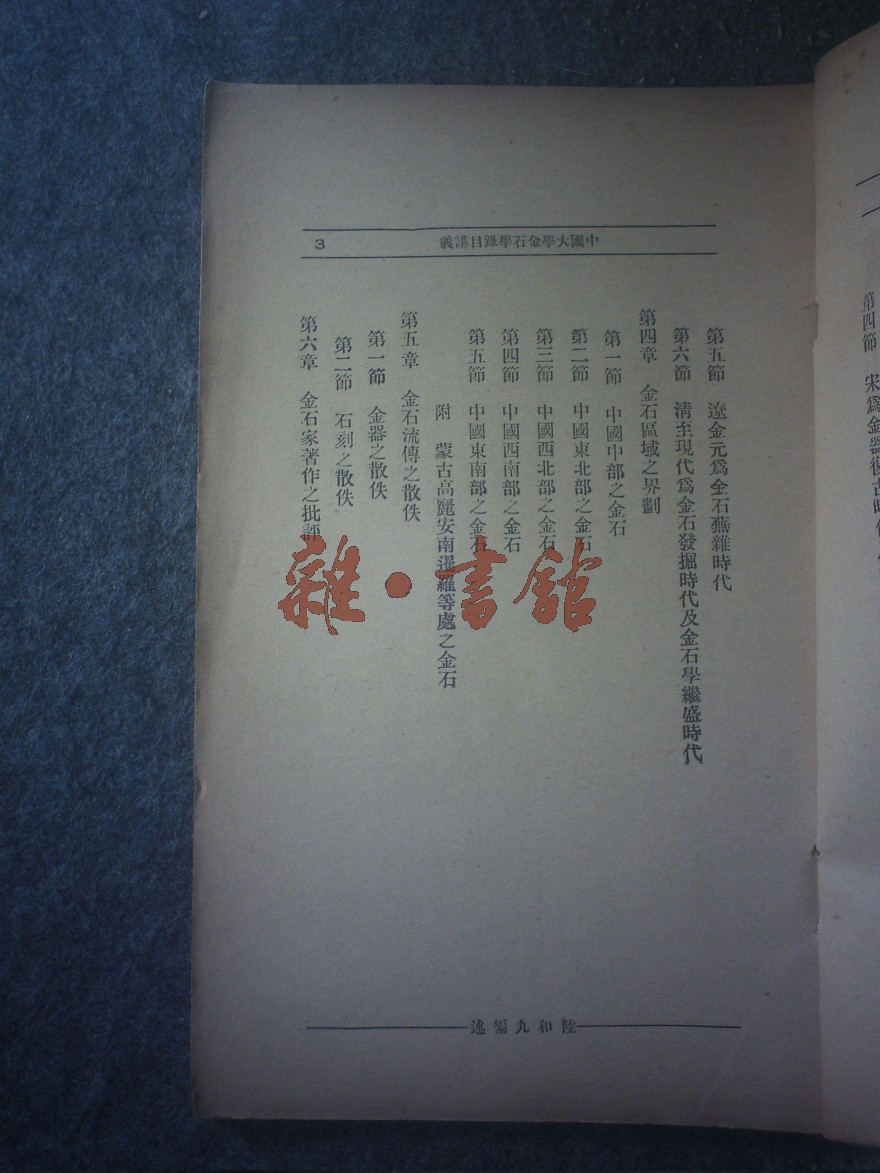 中國大學金石學錄目講義
3
第五節　遼金元爲金石蕪雜時代
第六節　淸至現代爲金石發掘時代及金石學繼盛時代
第四章　金石區域之界劃
第一節　中國中部之金石
第二節　中國東北部之金石
第三節　中國西北部之金石
第四節　中國西南部之金石
第五節　中國東南部之金石
附　蒙古高麗安南暹羅等處之金石
第五章　金石流傳之散佚
第一節　金器之散佚
第二節　石刻之散佚
第六章　金石家著作之批評
陸和九編述
雜·書館
第四節　宋爲金器復古時代